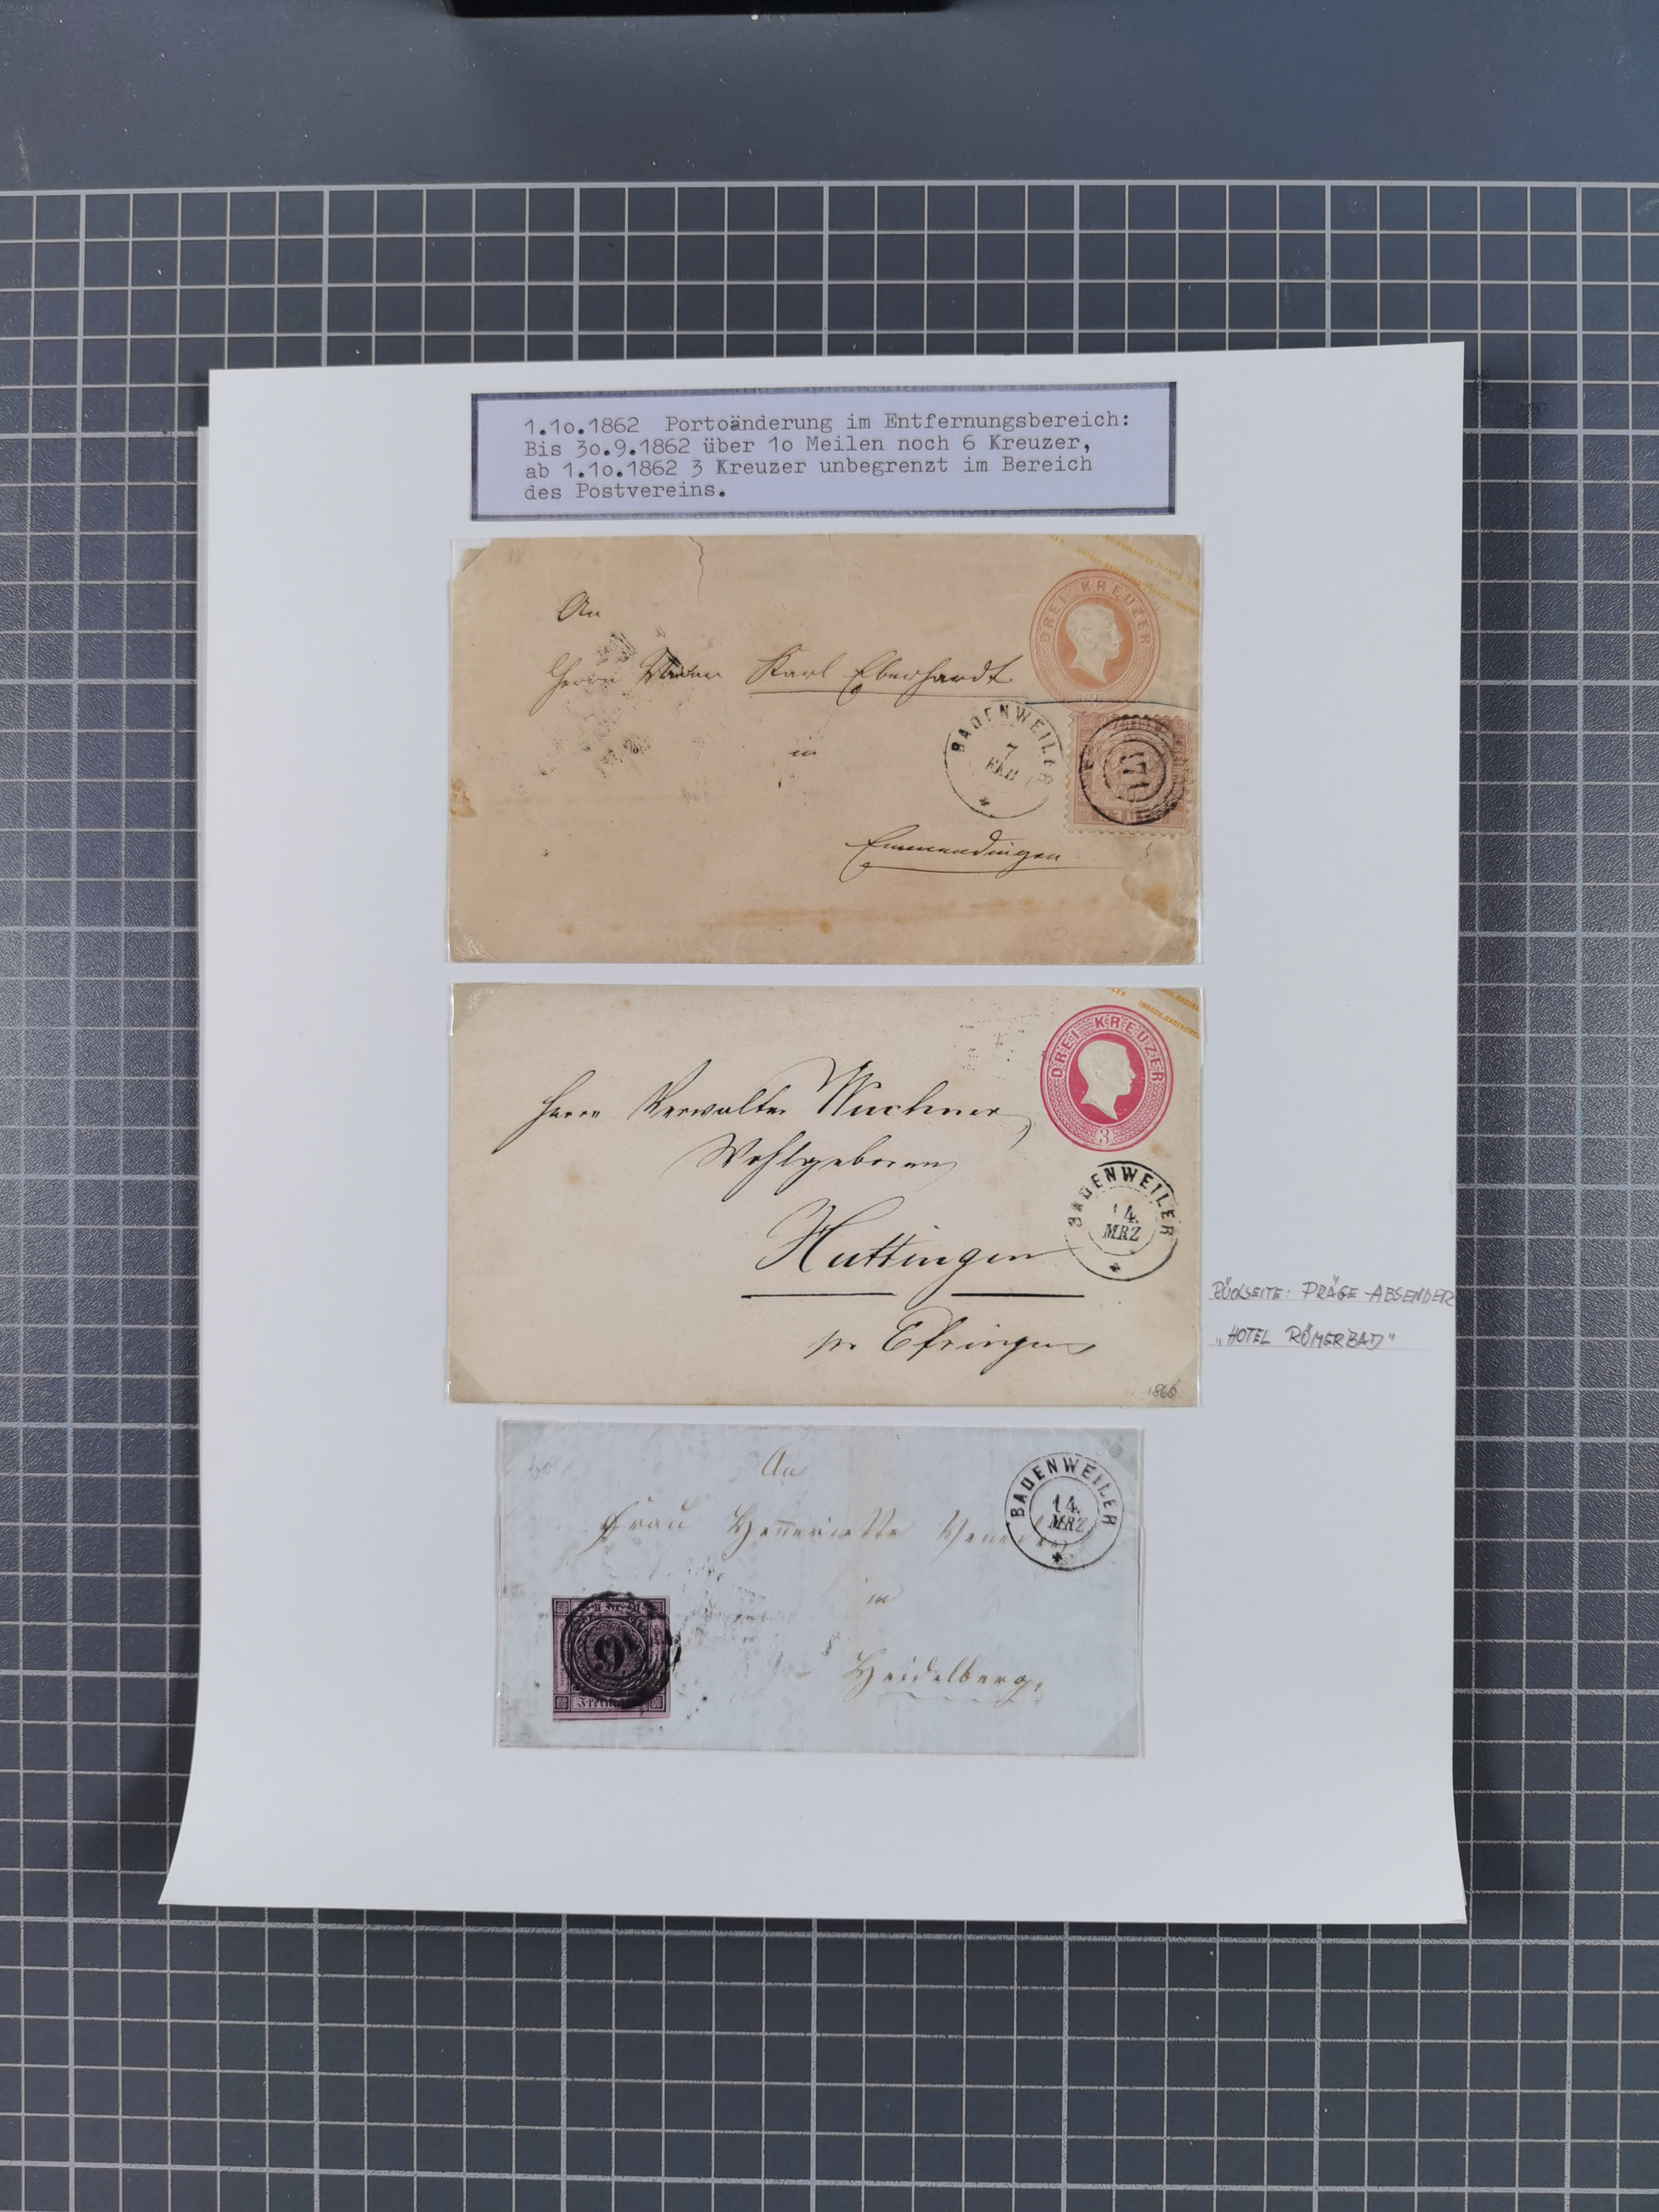 1.10.1862 Portoänderung im Entfernungsbereich:
Bis 30.9.1862 über 10 Meilen noch 6 Kreuzer,
ab 1.10.1862 3 Kreuzer unbegrenzt im Bereich
des Postvereins.
DREI KREUZER
An
Herrn Karl Eberhardt
in
BADENWEILER
7
FEB
Emmendingen
DREI KREUZER
3
Herrn Verwalter Wuchner
Wohlgeboren
BADENWEILER
14.
MRZ
Huttingen
pr Efringen
1866
RÜCKSEITE: PRÄGE-ABSENDER
„HOTEL RÖMERBAD"
An
BADENWEILER
14.
MRZ
Frau Henriette
in
9
Heidelberg.